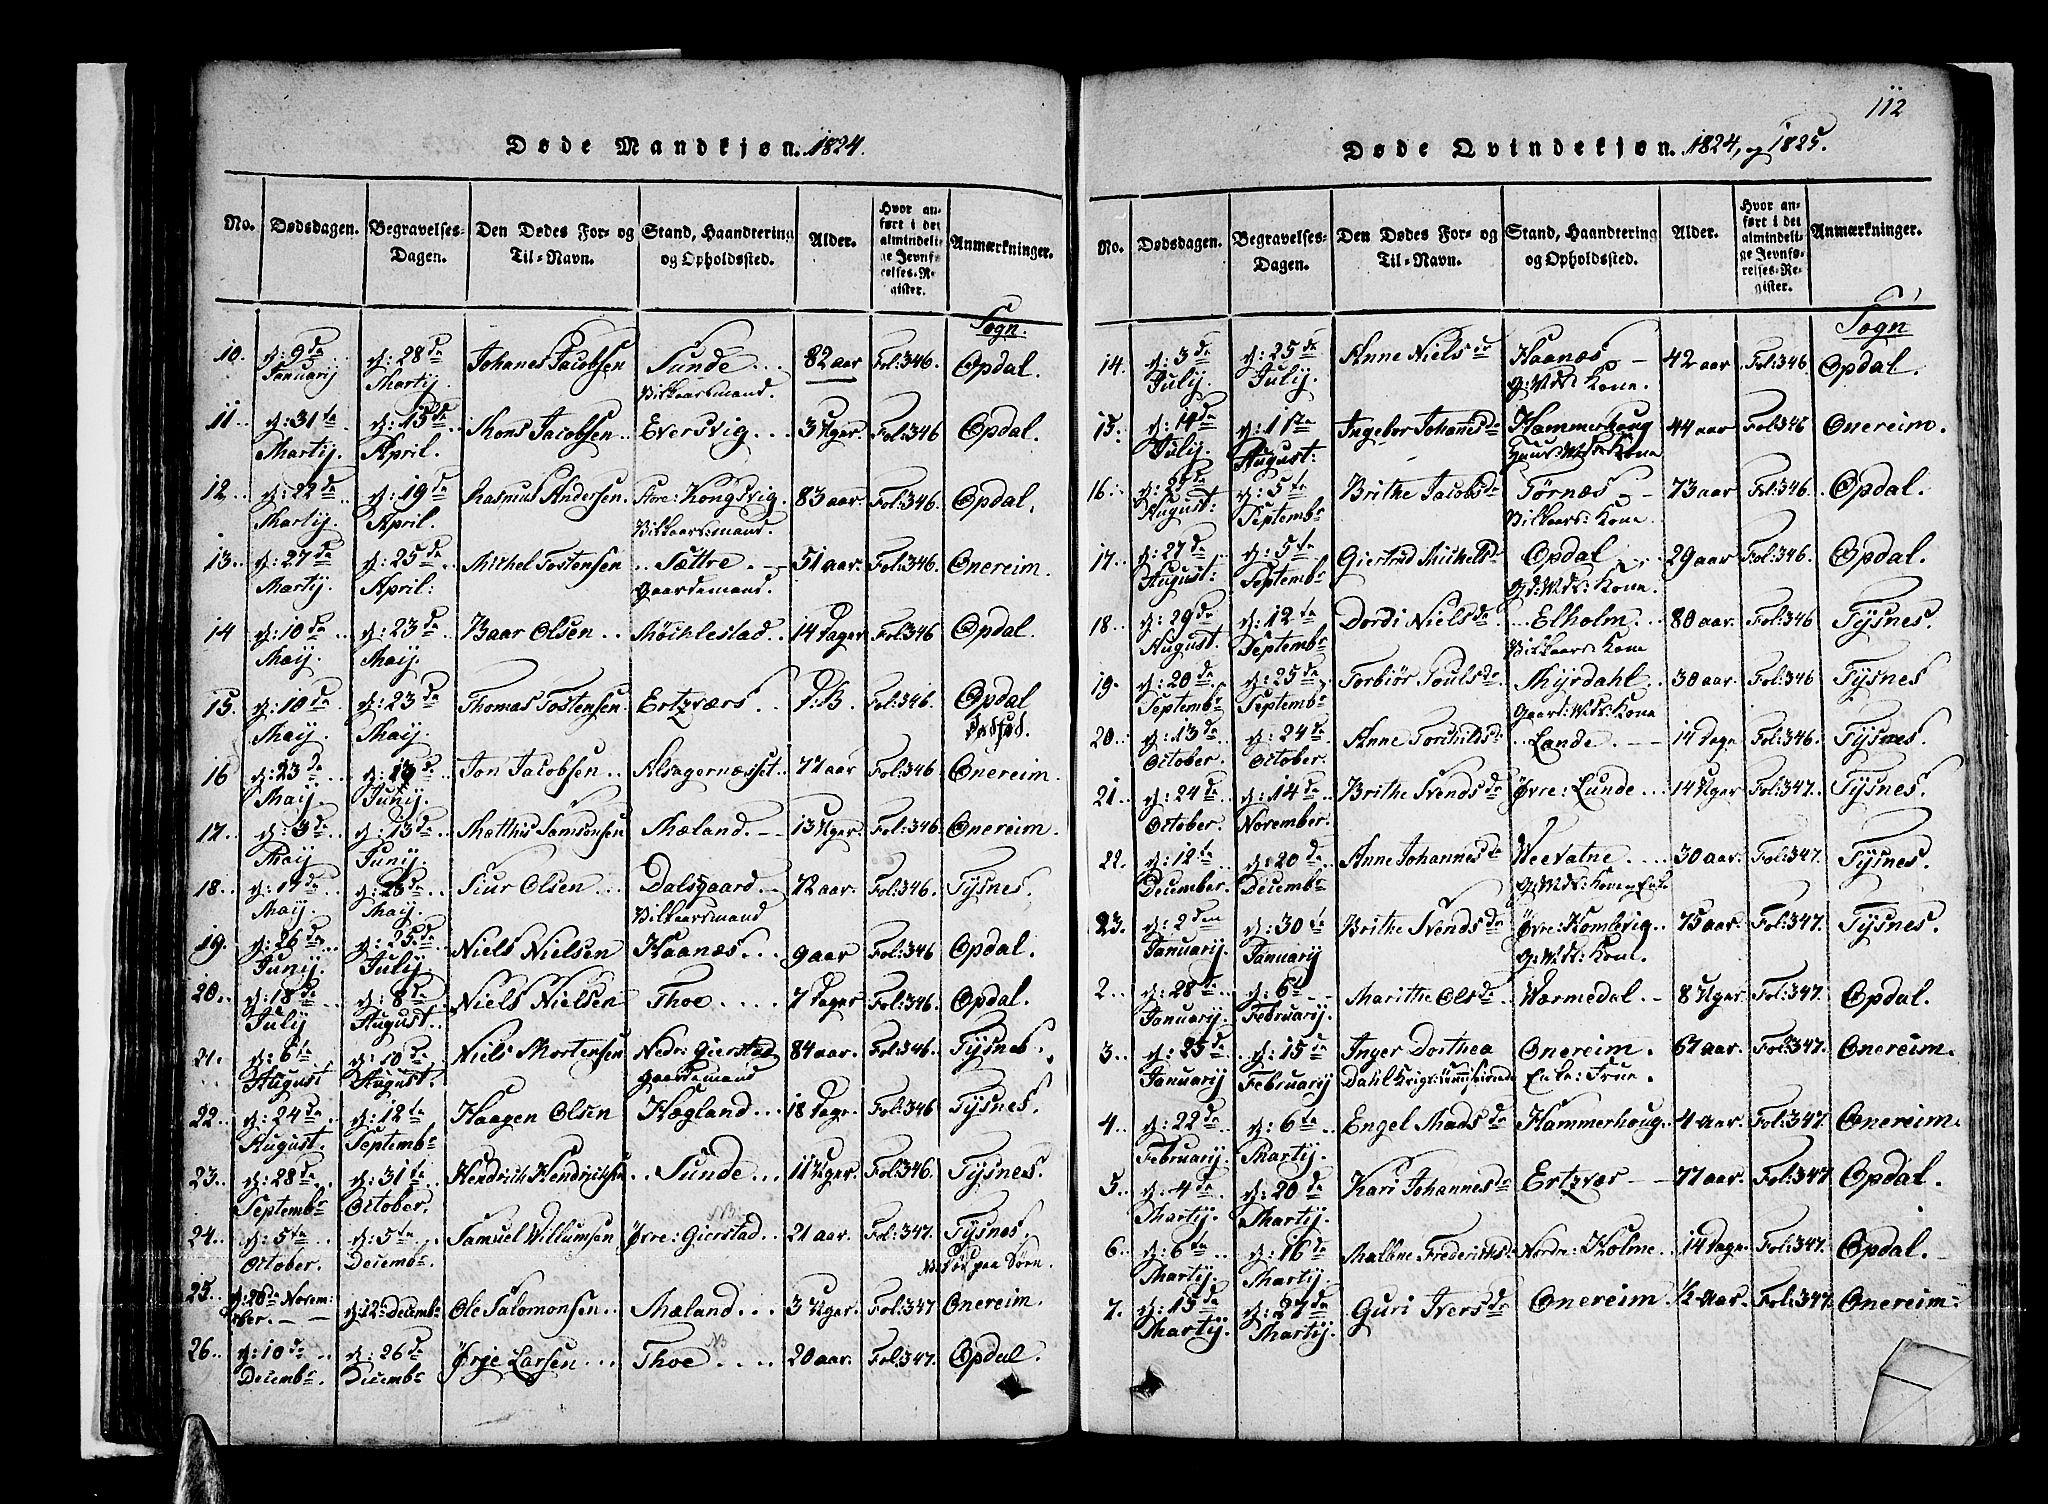 112
Døde Mandkjøn. 1824.
No. Dødsdagen. Begravelses-Dagen. Den Dødes For- og Til-Navn. Stand, Haandtering og Opholdssted. Alder. Hvor anført i det almindelige Jevnførelses-Register. Anmærkninger.
Sogn.
10. d: 9de d: 28de Johanes Jacobsen Sunde 82 aar Fol: 346. Opdal.
Januarij Martij. Vilkaarsmand.
11. d: 31te d: 15de Mons Jacobsen Eversvig 3 Uger. Fol: 346 Opdal.
Martij. April.
12. d: 22de d: 19de Rasmus Andersen Store: Kongsvig 83 aar Fol: 346. Opdal.
Martij. April. Vilkaarsmand.
13. d: 27de d: 25de Michel Tostensen Sættre 51 aar. Fol: 346. Onereim.
Martij. April: Gaardemand.
14 d: 10de d: 23de Baar Olsen Møchlestad 14 Dager Fol: 346 Opdal.
Maij. Maij.
15. d: 10de d: 23de Thomas Tostensen Ertzværs Fol: 346. Opdal
Maij. Maij.
16 d: 23de d: 13de Jon Jacobsen Alsagernæsset 77 aar Fol: 346 Onereim.
Maij. Junij.
17. d: 3de d: 13de Matthis Samsonsen Mæland 13 Uger. Fol: 346. Onereim.
Maij Junij.
18. d: 17de d: 23de Siur Olsen Dalsgaard 72 aar. Fol: 346. Tysnes.
Maij. Maij. Vilkaarsmand
19. d: 26de d: 25de Niels Nielsen Haanæs 9 aar Fol: 346 Opdal.
Junij. Julij.
20. d: 18de d: 8de Niels Nielsen Thoe 7 Dager Fol: 346. Opdal.
Julij August.
21. d: 6te d: 10de Niels Mortensen Nedr: Gierstad 84 aar. Fol: 346. Tysnes.
August August. Gaardemand
22. d: 24de d: 12te Haagen Olsen Hægland 18 Dage. Fol: 346 Tysnes.
August. Septembr
23. d: 28de d: 31te Hendrich Hendrichsen Sunde 11 Uger. Fol: 346. Tysnes.
Septembr October.
NB
24. d: 5te d: 5te Samuel Villumsen Øvre: Gierstad 21 aar. Fol: 347. Tysnes.
October. Decembr. NB. Død paa Søen.
25. d: 28de Novem: d: 12te Decembr Ole Salomonsen Mæland 3 Uger. Fol: 347 Onereim.
ber.
NB
26. d: 10de d: 26de Ørje Larsen Thoe 20 aar. Fol: 347. Opdal.
Decembr. Decembr
Døde Qvindekjøn. 1824, og 1825.
No. Dødsdagen. Begravelses-Dagen. Den Dødes For- og Til-Navn. Stand, Haandtering og Opholdssted. Alder. Hvor anført i det almindelige Jevnførelses-Register. Anmærkninger.
Sogn
14. d: 3de d: 25de Anne Nielsdr Haanæs 42 aar Fol: 346 Opdal.
Julij. Julij. G: Mds: Kone.
15. d: 14de d: 1ste Ingebor Johannesdr Hammerhoug 44 aar Fol: 346 Onereim.
Julij. August: Kone
16. d: d: 5te Brithe Jacobsdr Tørnæs 73 aar Fol: 346. Opdal.
August: Septembr Vilkaars: Kone.
17. d: 27de d: 5te Giertrud Michelsdr Opdal 29 aar Fol: 346. Opdal.
August: Septembr Gd: Mds: Kone.
18. d: 29de d: 12te Dordi Nielsdr Elholm 80 aar. Fol: 346 Tysnes.
August. Septembr Vilkaars: Kone
19. d: 20de d: 25de Torbiør Poulsdr Myrdahl 30 aar. Fol: 346 Tysnes
Septembr Septembr Gaard: Mds: Kone
20. d: 13de d: 24de Anne Torchildsdr Lande 14 Dage Fol: 346. Tysnes.
October. October.
21. d: 24de d: 14de Brithe Svendsdr Øvre: Lunde 14 Uger Fol: 347. Tysnes.
October. November.
22. d: 12te d: 20de Anne Johannesdr Veevatne 30 aar. Fol: 347. Tysnes.
December. Decembr G: Mds: Kone
23. d: 2den d: 30te Brithe Svendsdr Øvre: Hombvig 75 aar. Fol: 347. Tysnes.
Januarij. Januarij G: Mds: Kone.
2 d: 28de d: 6te Marithe Olsdr Warmedal 8 Uger Fol: 347. Opdal.
Januarij. Februarij.
3. d: 25de d: 15de Inger Dorthea Onereim. 67 aar. Fol: 347. Onereim.
Januarij Februarij Dahl Enke: Frue.
4. d: 22de d: 6te Engel Madsdr Hammerhoug 4 aar. Fol: 347. Onereim.
Februarij. Martij.
5. d: 4de d: 20de Kari Johannesdr Ertzvær 77 aar. Fol: 347 Opdal.
Martij. Martij.
6. d: 6te d: 16de Malene Frederiksdr Nordre: Holme 14 Dage. Fol: 347. Opdal.
Martij. Martij.
7. d: 15de d: 27de Guri Iversdr Onereim 1/2 aar. Fol: 347. Onereim.
Martij Martij.